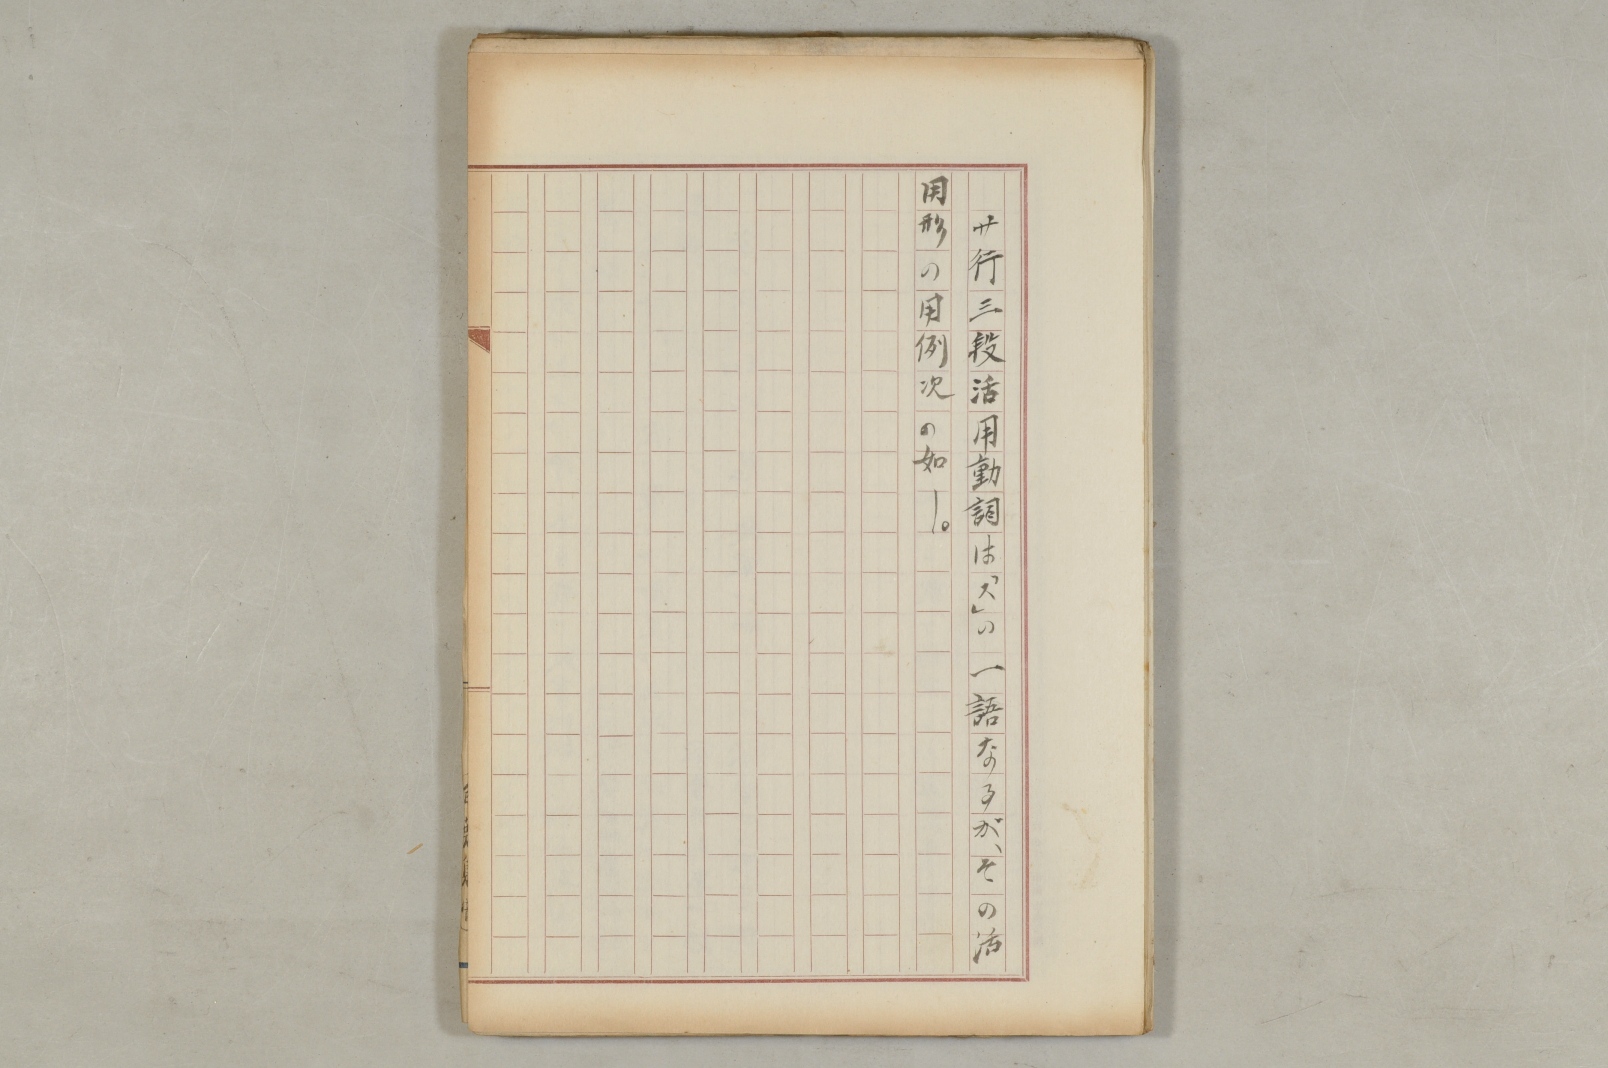 サ行三段活用動詞は「ス」の一語なるが、その活
用形の用例次の如し。